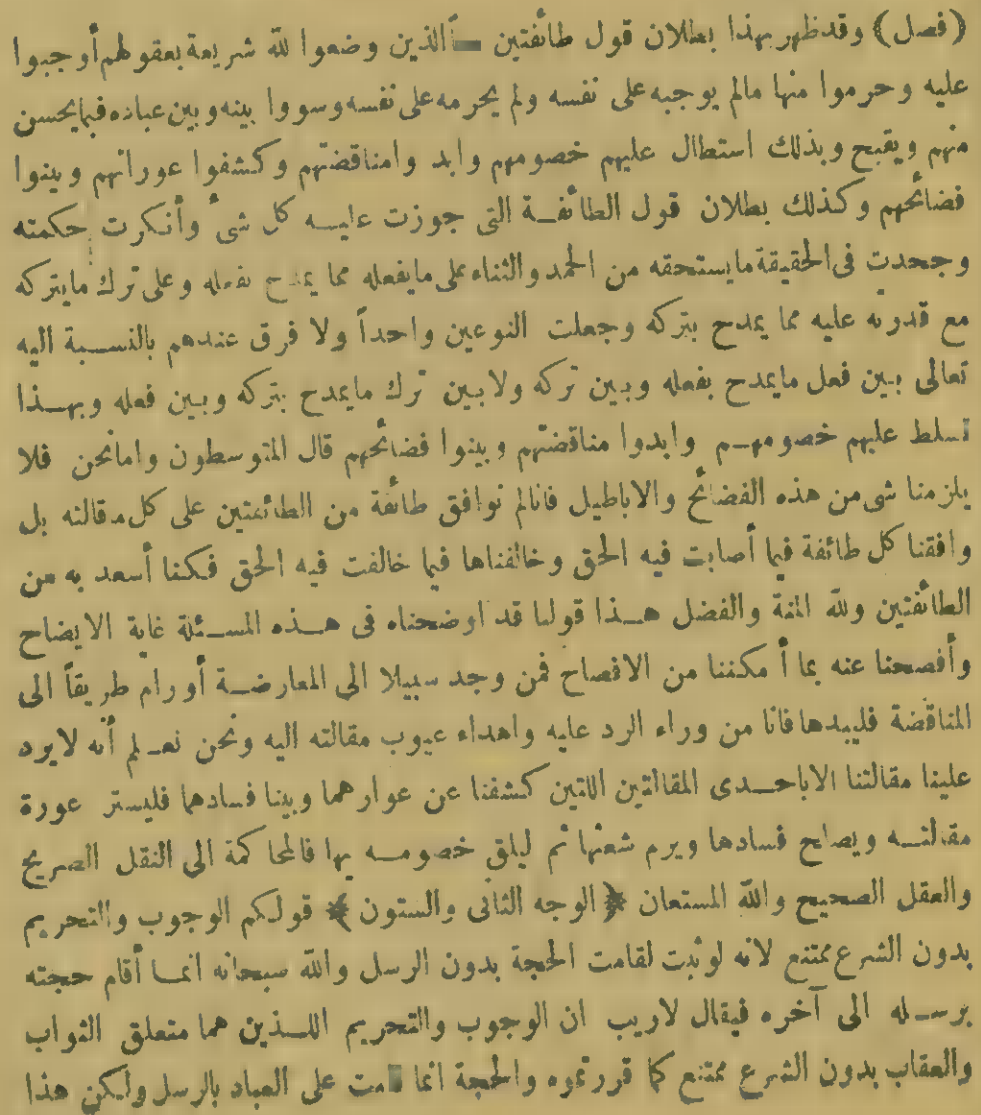 (فصل) وقد ظهر بهذا بطلان قول طائفتين الذين وضعوا لله شريعة بعقولهم أوجبوا
عليه وحرموا منها مالم يوجبه على نفسه ولم يحرمه على نفسه وسووا بينه وبين عباده فيما يحسن
منهم ويقبح وبذلك استطال عليهم خصومهم وابدوا مناقضتهم وكشفوا عوراتهم وبينوا
فضائحهم وكذلك بطلان قول الطائفة التي جوزت عليه كل شئ وأنكرت حكمته
وجحدت في الحقيقة مايستحقه من الحمد والثناء على مايفعله مما يمدح بفعله وعلى ترك مايتركه
مع قدرته عليه مما يمدح بتركه وجعلت النوعين واحداً ولا فرق عندهم بالنسبة اليه
تعالى بين فعل مايمدح بفعله وبين تركه ولا بين ترك مايمدح بتركه وبين فعله وبهذا
تسلط عليهم خصومهم وابدوا مناقضتهم وبينوا فضائحهم قال المتوسطون وامانحن فلا
يلزمنا شئ من هذه الفضائح والاباطيل فانالم نوافق طائفة من الطائفتين على كل مقالته بل
وافقنا كل طائفة فيما أصابت فيه الحق وخالفناها فيما خالفت فيه الحق فكنا أسعد به من
الطائفتين ولله المنة والفضل هذا قولنا قد اوضحناه في هذه المسئلة غاية الايضاح
وأفصحنا عنه بما أمكننا من الافصاح فمن وجد سبيلا الى المعارضة أو رام طريقاً الى
المناقضة فليبدها فانا من وراء الرد عليه واهداء عيوب مقالته اليه ونحن نعلم أنه لايرد
علينا مقالتنا الاباحدى المقالتين اللتين كشفنا عن عوارهما وبينا فسادهما فليستر عورة
مقالته ويصلح فسادها ويرم شعثها ثم ليلق خصومه بها فالمحاكمة الى النقل الصريح
والعقل الصحيح والله المستعان ﴿ الوجه الثاني والستون ﴾ قولكم الوجوب والتحريم
بدون الشرع ممتنع لانه لوثبت لقامت الحجة بدون الرسل والله سبحانه انما أقام حجته
برسله الى آخره فيقال لاريب ان الوجوب والتحريم اللذين هما متعلق الثواب
والعقاب بدون الشرع ممتنع كما قررتموه والحجة انما قامت على العباد بالرسل ولكن هذا